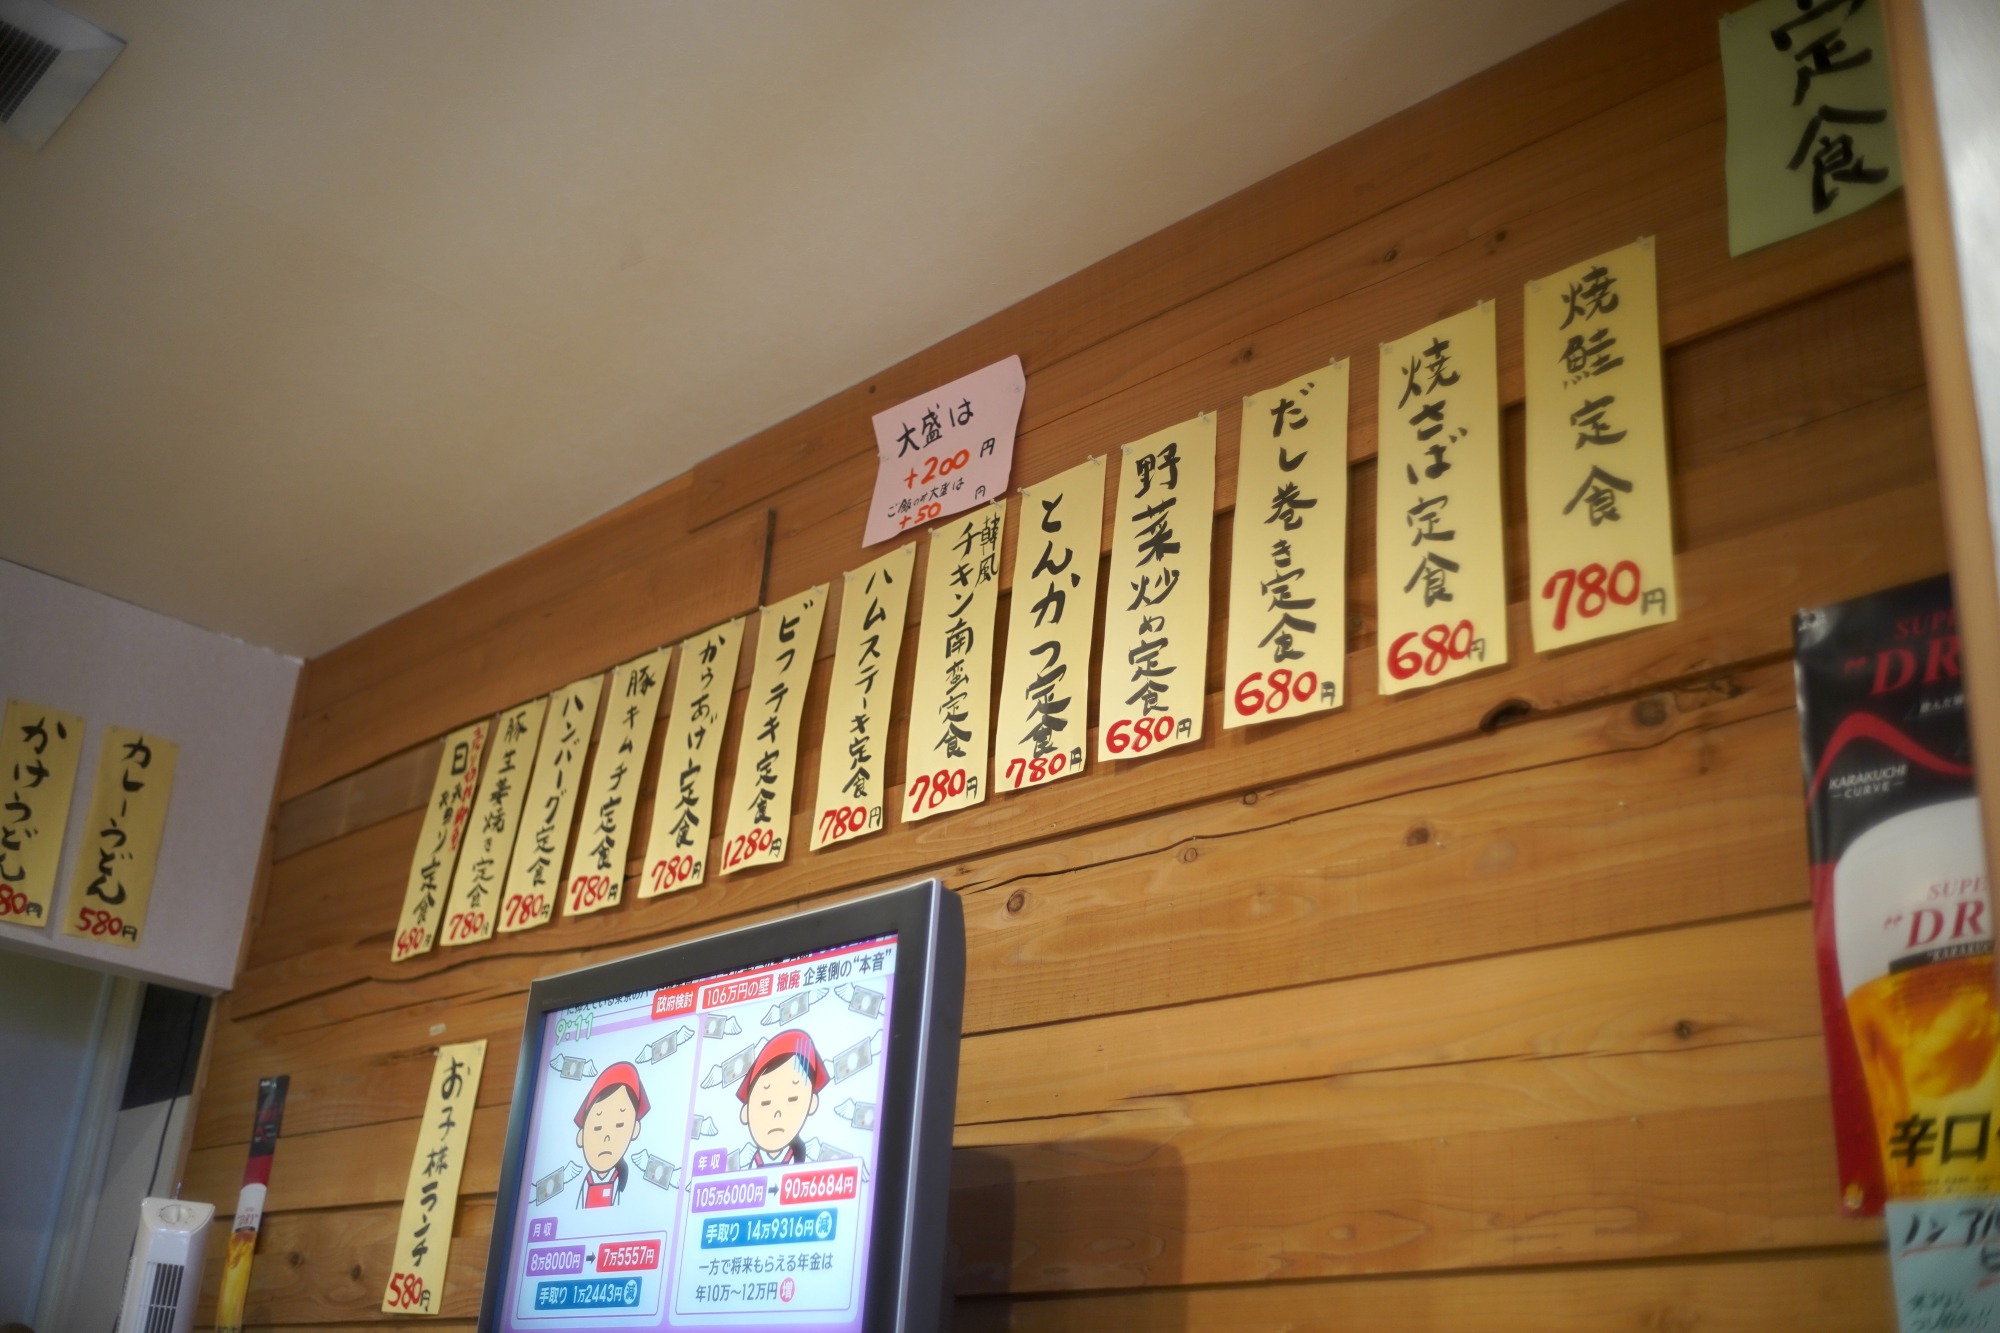 定食
焼鮭定食
780円
焼さば定食
680円
だし巻き定食
680円
野菜炒め定食
680円
とんかつ定食
780円
韓風
チキン南蛮定食
780円
大盛は
+200円
ご飯のみ大盛は
+50円
ハムステーキ定食
780円
ビフテキ定食
1280円
からあげ定食
780円
豚キムチ定食
780円
ハンバーグ定食
780円
豚生姜焼き定食
780円
定食
かけうどん
80円
カレーうどん
580円
お子様ランチ
580円
9:11
政府検討 106万円の壁 撤廃 企業側の“本音”
月収
8万8000円→7万5557円
手取り 1万2443円減
年収
105万6000円→90万6684円
手取り 14万9316円減
一方で将来もらえる年金は
年10万〜12万円増
KARAKUCHI
CURVE
辛口